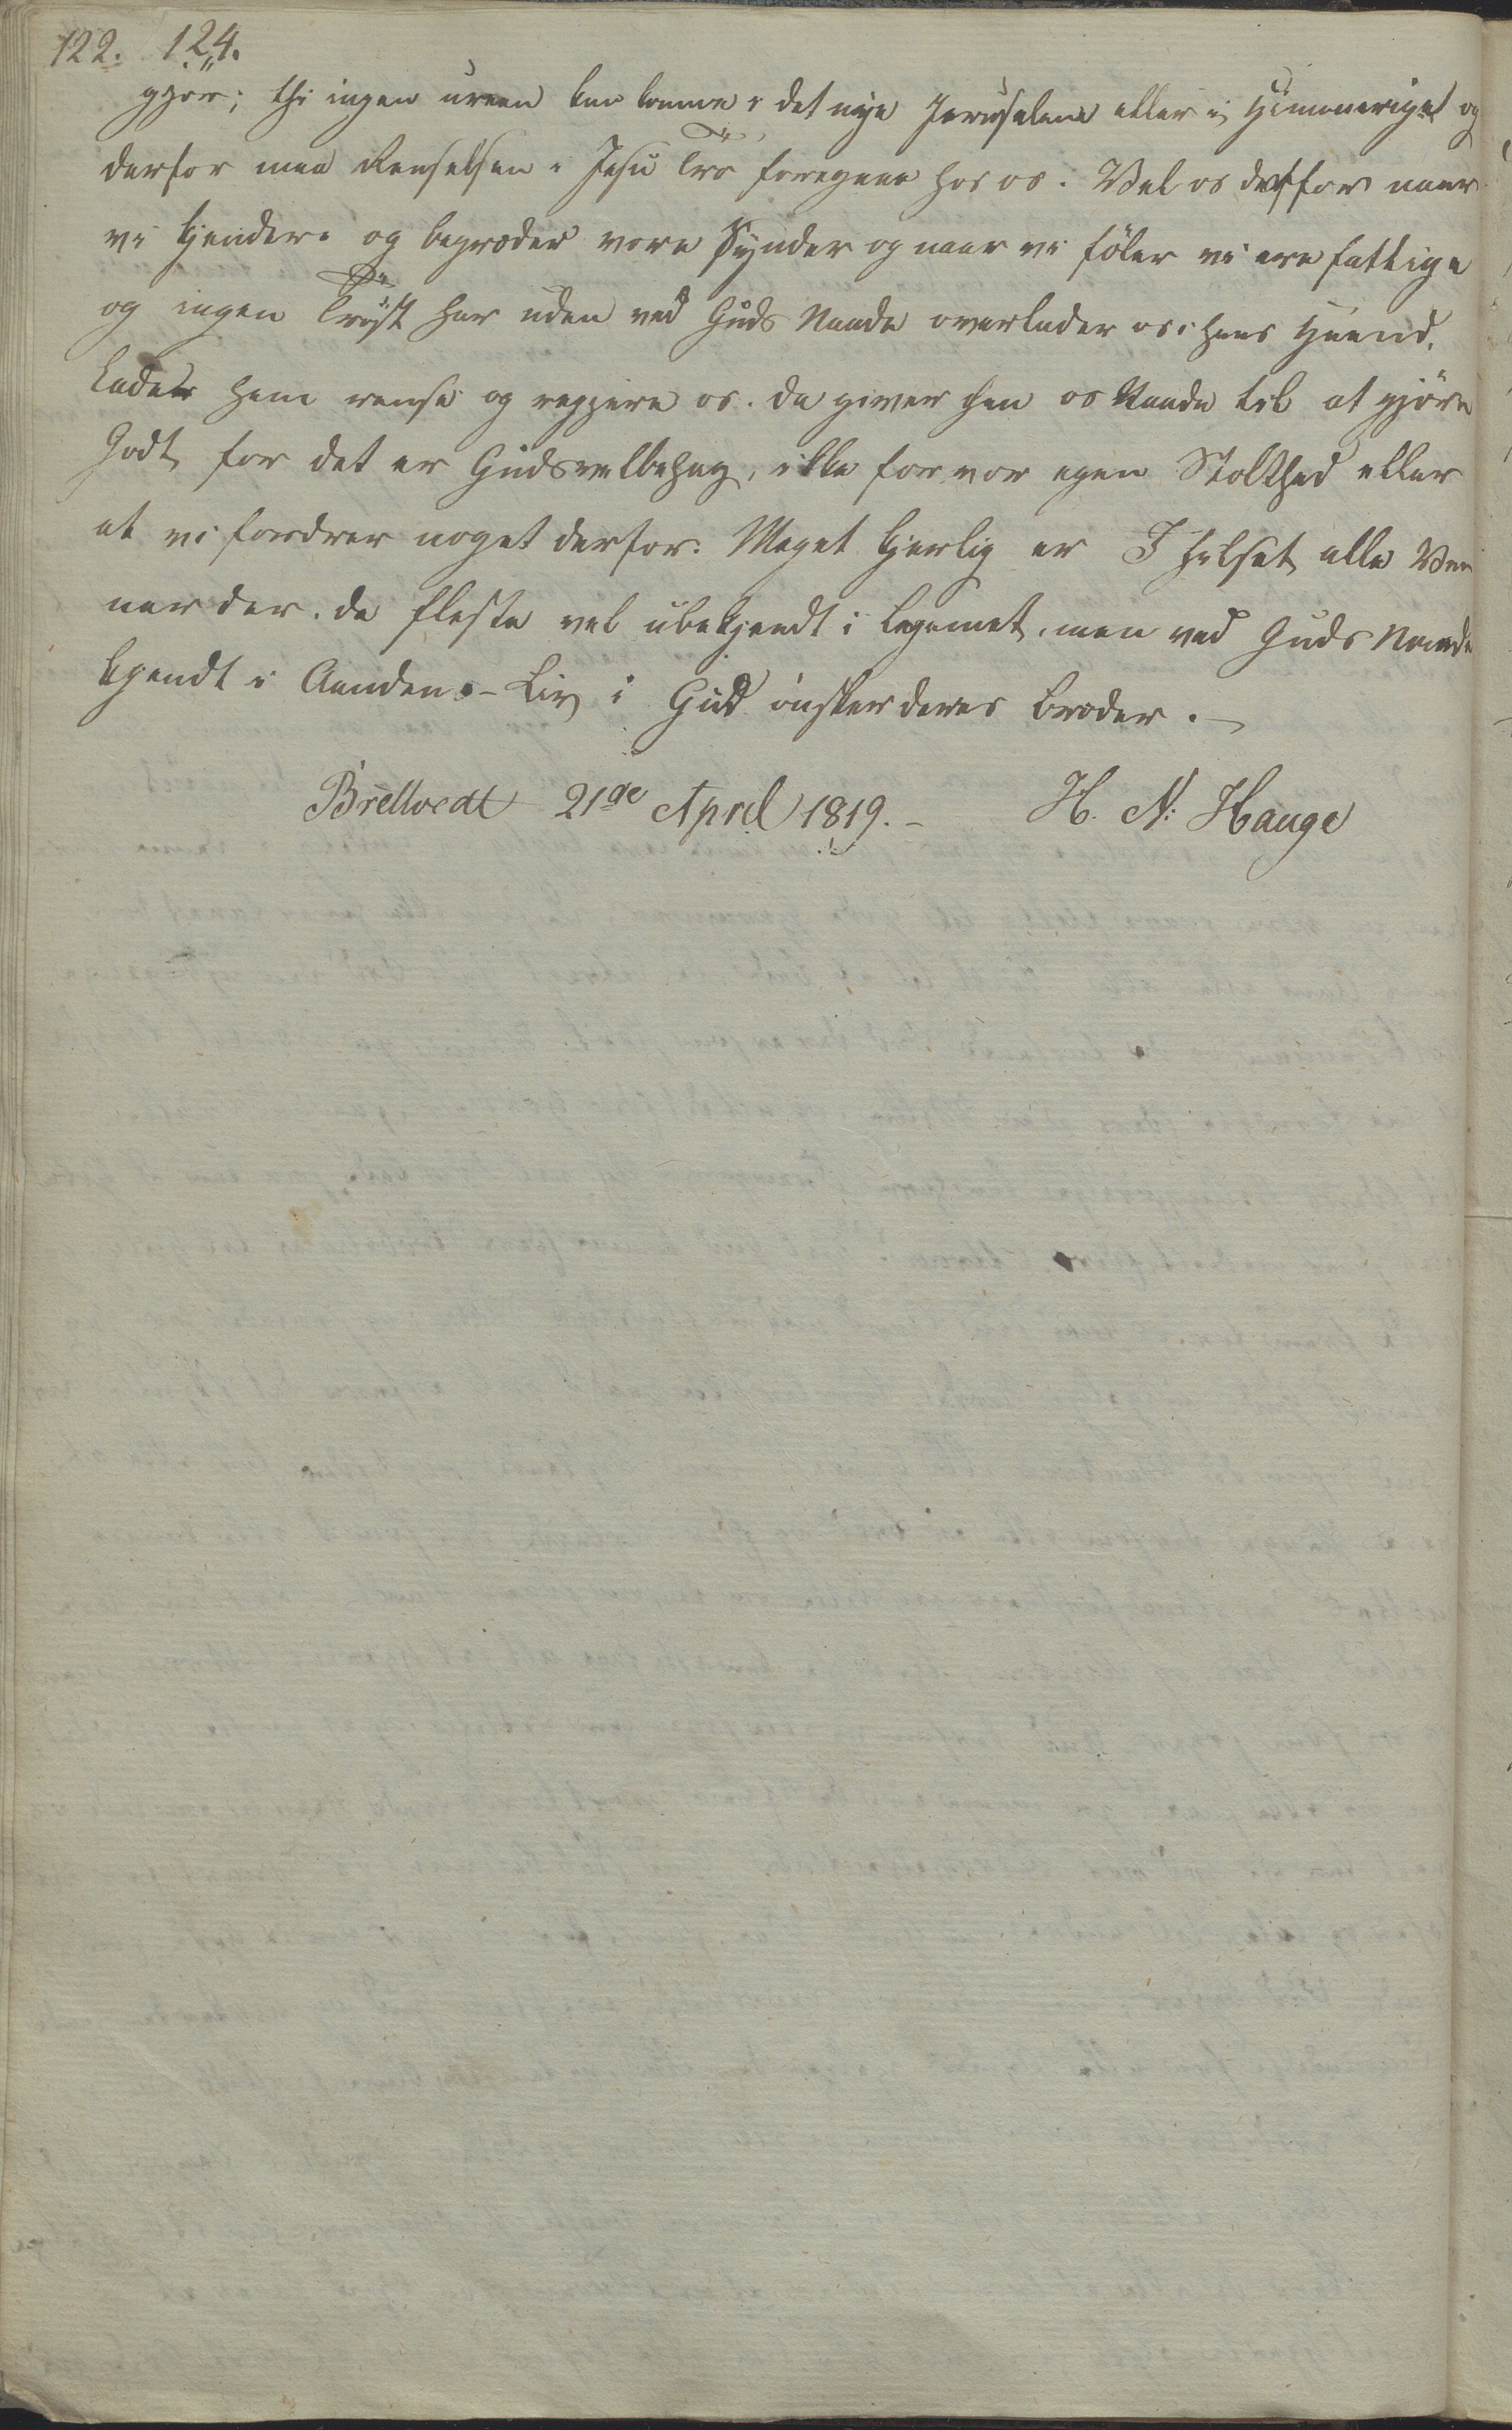 122. 124.
gjør; thi ingen ureen kan komme i det nye Jerusalem eller i Himmeriget og
derfor maa Renselsen i Jesu Tro foregaae hos os. Vel os derfor naar
vi kjender og begræder vore Synder og naar vi føler vi ere fattige
og ingen Trøst har uden ved Guds Naade overlader os i hans Haand.
Lader ham rense og regjere os. da giver han os Naade til at gjøre
Godt for det er Guds velbehag, ikke for vor egen Stolthed eller
at vi fordrer noget derfor. Meget kjerlig er I hilset alle Ven
ner der. de fleste vel ubekjendt i Legemet, men ved Guds Naade
kjendt i Aanden. - Liv i Gud ønsker deres Broder. -
Bredtvedt 21de April 1819. - H. N: Hauge